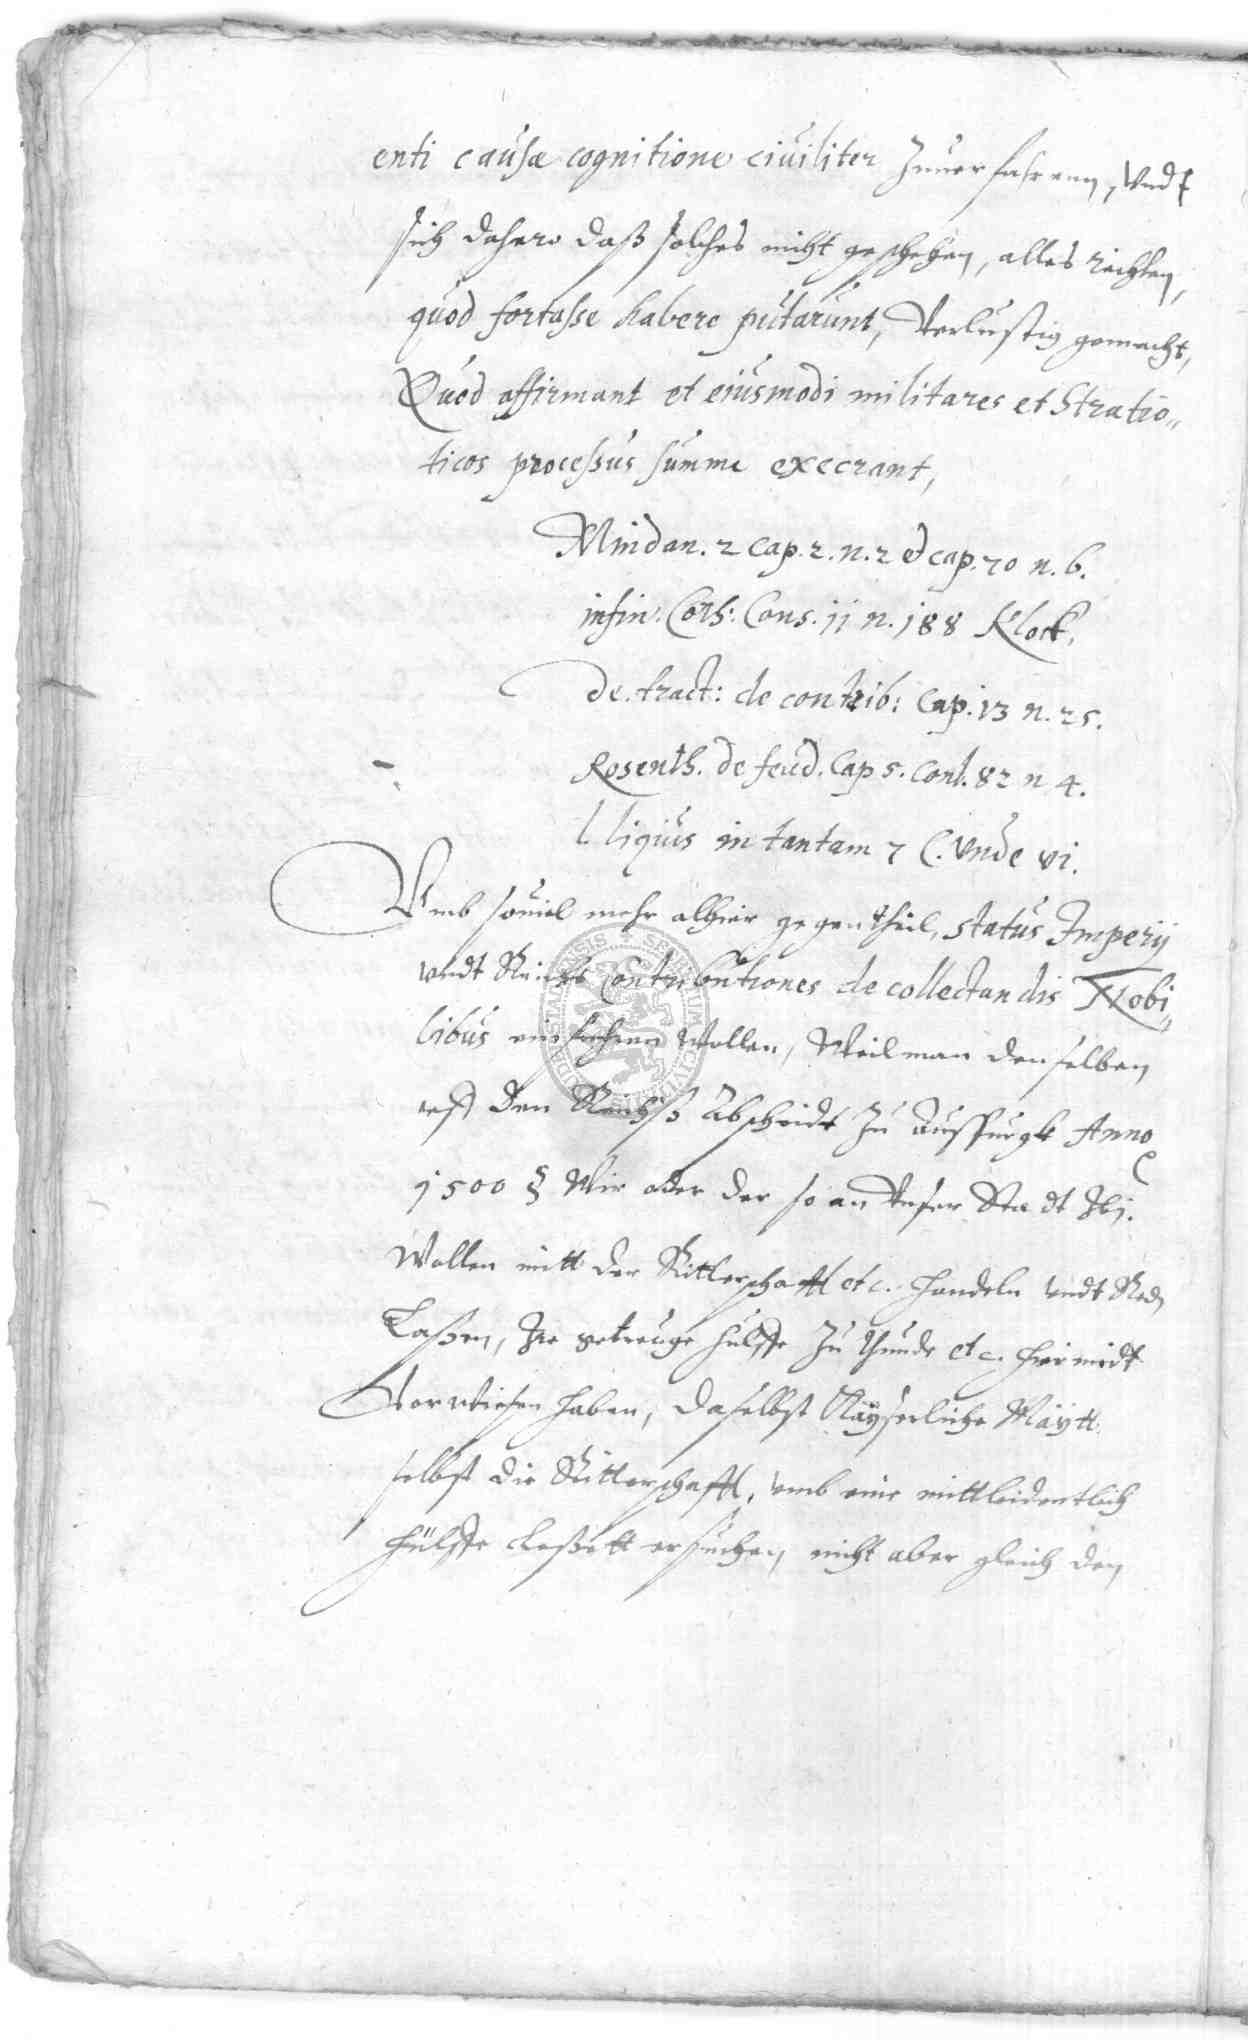 enti causæ cognitione ciuiliter Zuuerfahrenn, vndt
sich dahero daß solches nicht geschehen, alles rechten,
quod fortasse habere putarunt, Verlustig gemacht,
Quod affirmant et eiusmodi militares et Stratio„
ticos processus summe execrant,
Mindan. 2 cap. 2. n. 2 et cap. 20 n. 6.
infin: Coth: Cons. 11 n. 188 Klock,
De tract: de contrib: Cap. 13 n. 25.
Rosenth. de feud. Cap 5. Conl. 82 n 4.
l. ligius in tantam 7 C. Vnde vi.
Vmb souiel mehr alhier gegentheil, status Imperij
vndt Reichs Contributiones de collectandis Nobi„
libus einfuhren Wollen, Weil man denselben
vff den Reichß Abscheidt Zu Augspurgk Anno
1500 § Wir oder der so an Vnser Stadt
Wollen mitt der Ritterschafft etc. handeln vndt Red
Laßen, Ire getreuge hulffe Zu thunde etc. hiermidt
Vorwiesen haben, daselbst Kayserliche Maytt
selbst die Ritterschafft, vmb eine mittleidentlich
hülffe Leßett ersuchen, nicht aber gleich den